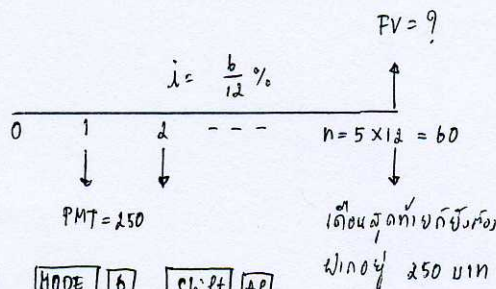 FV = ?
i = 6/12 %
0 1 2 --- n = 5 × 12 = 60
PMT = 250
เดือนสุดท้ายก็ยังต้อง
ฝากอยู่ 250 บาท
MODE Shift